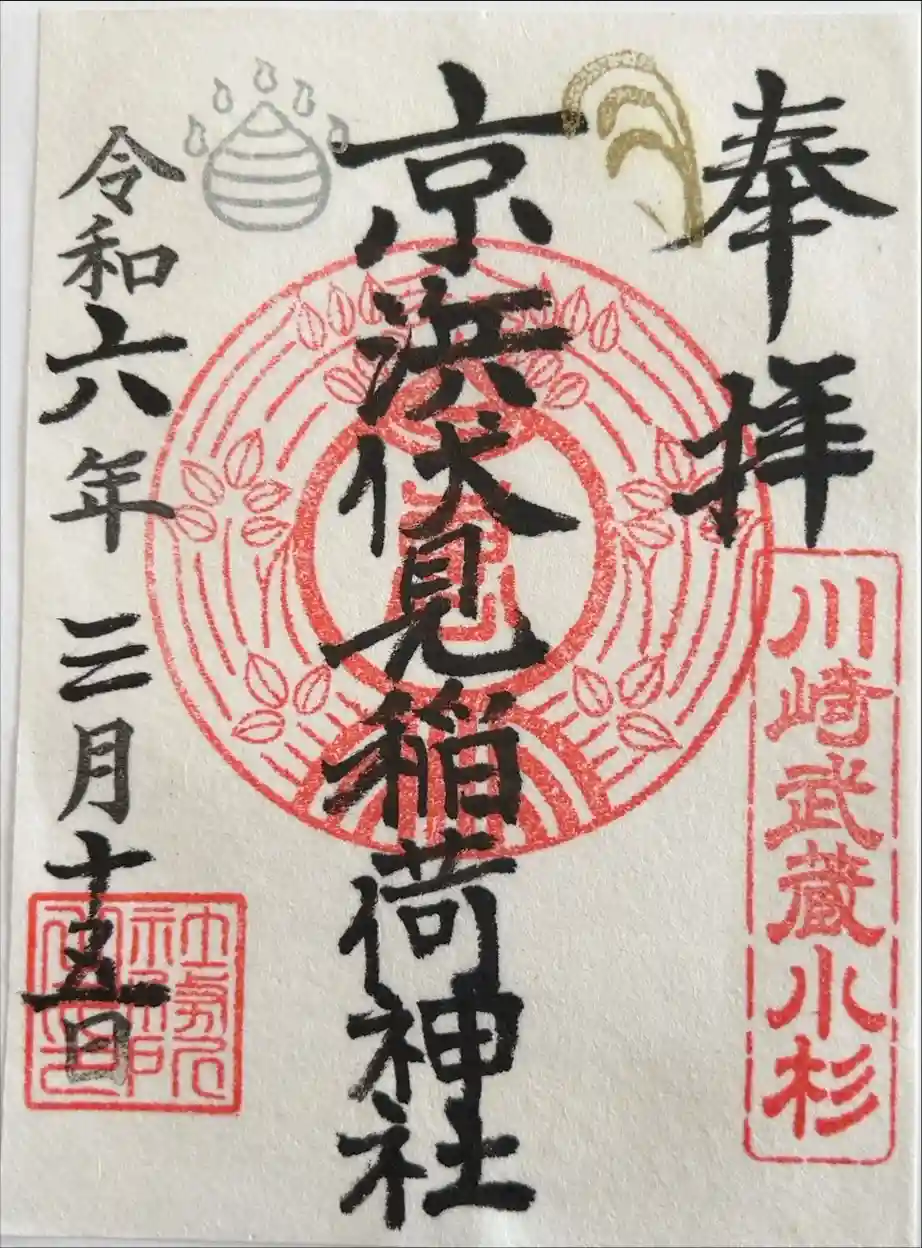 奉拝
川崎武蔵小杉
京浜伏見稲荷神社
令和六年三月十五日